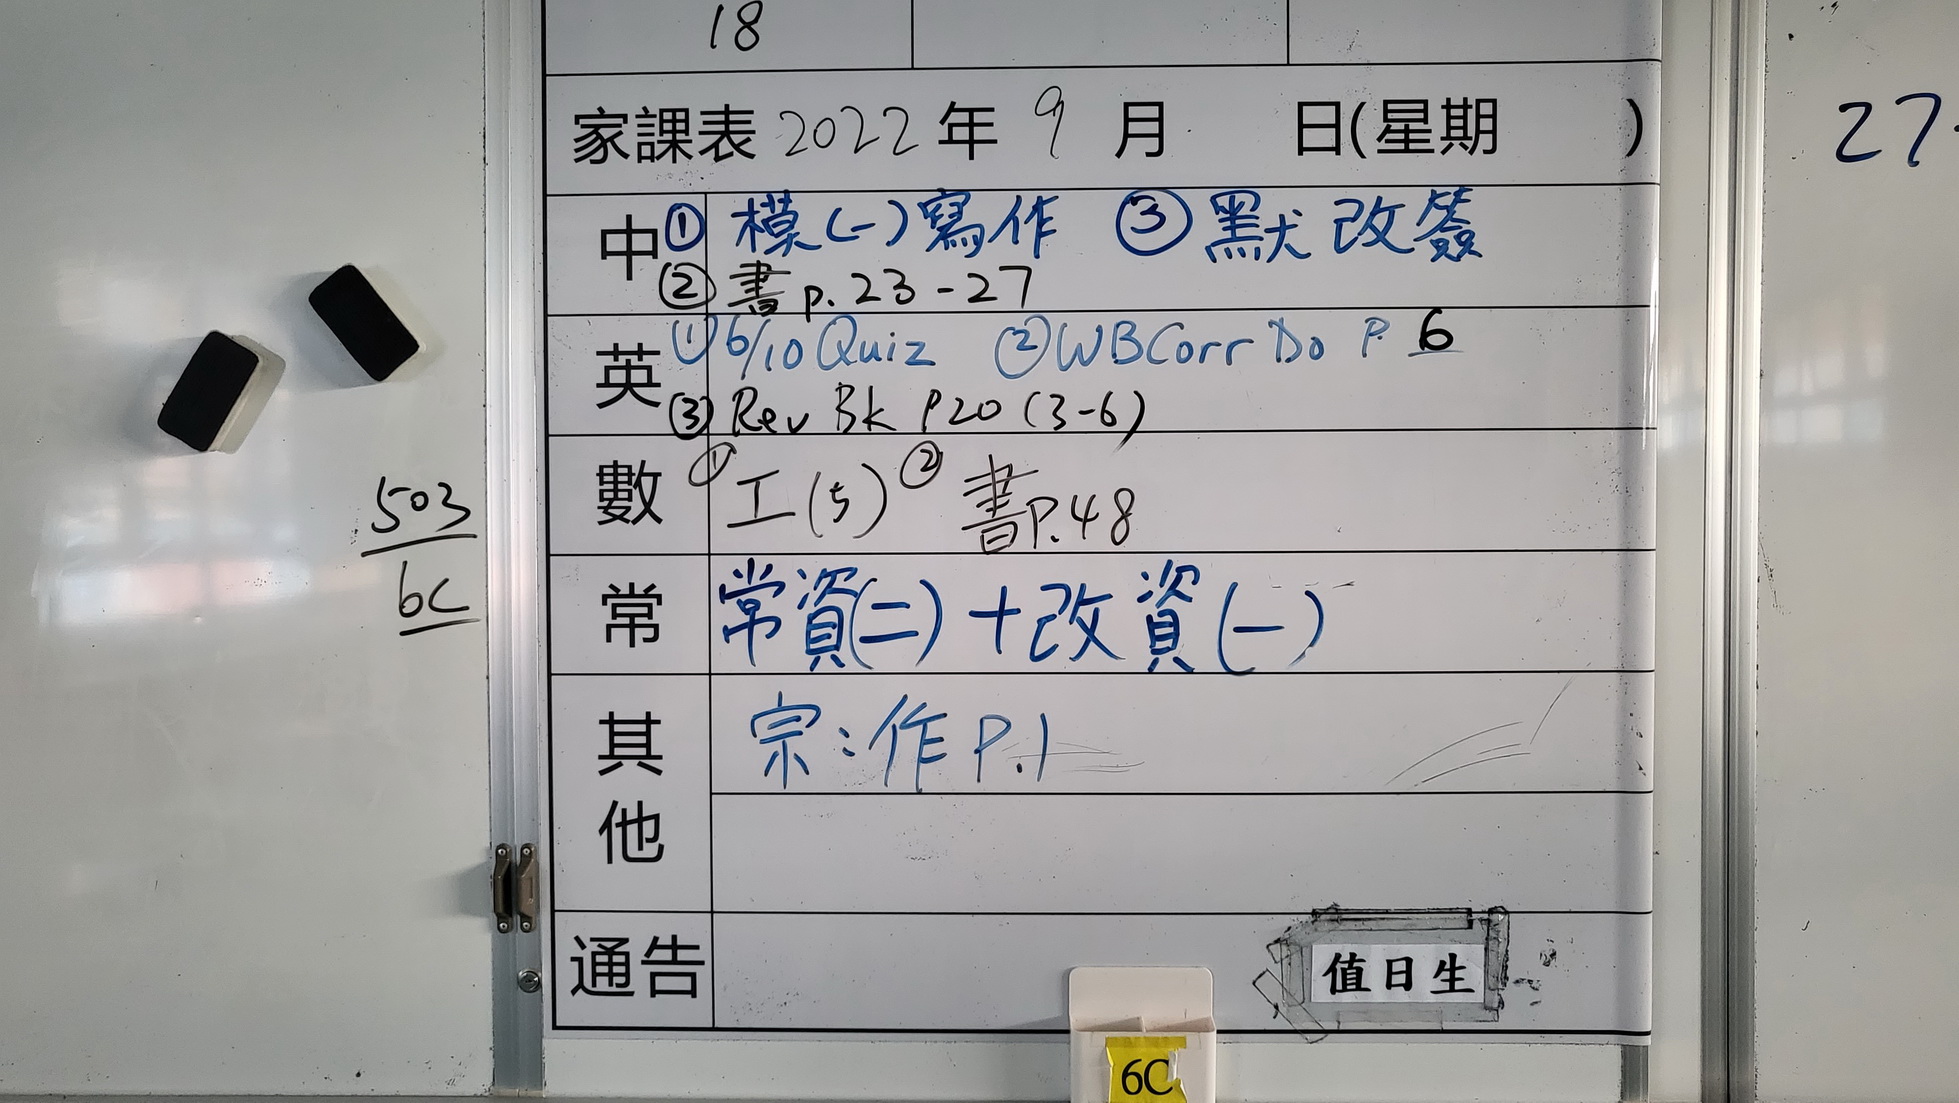 18
家課表 2022 年 9 月 日(星期 )
27
中 ① 模(一)寫作 ③ 默改簽
② 書 p.23-27
英 ① 6/10 Quiz ② WB Corr Do P 6
③ Rev Bk P20 (3-6)
數 ① 工(5) ② 書P.48
503
6C
常 常資(二)+改資(一)
其他 宗:作 P.1
通告
值日生
6C